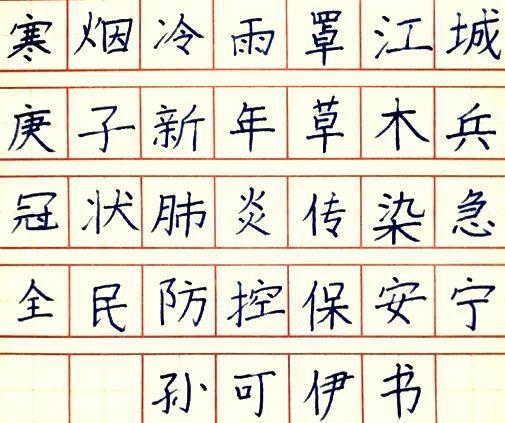 寒烟冷雨罩江城
庚子新年草木兵
冠状肺炎传染急
全民防控保安宁
孙可伊书